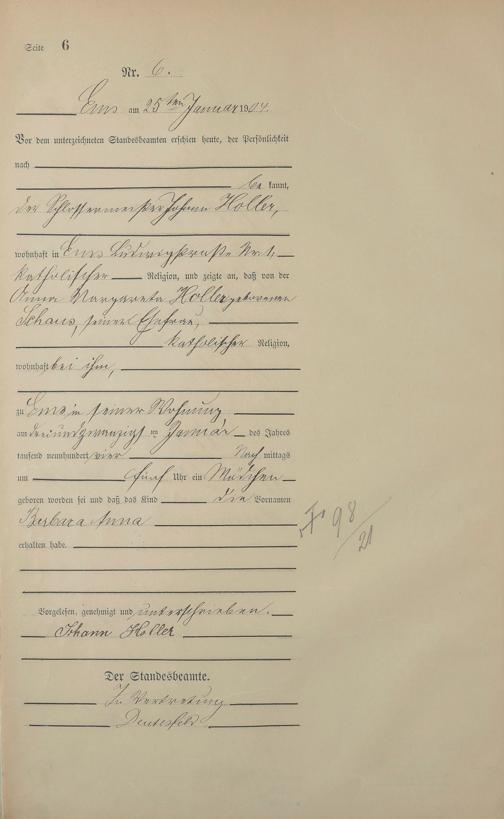 Seite 6
Nr. 6.
Ems am 25ten Januar 1904.
Vor dem unterzeichneten Standesbeamten erschien heute, der Persönlichkeit
nach
be kannt,
der Schlossermeister Johann Holler,
wohnhaft in Ems Ludwigstraße Nr. 1,
katholischer Religion, und zeigte an, daß von der
Anna Margareta Holler geborenen
Schaus, seiner Ehefrau,
katholischer Religion,
wohnhaft bei ihm,
zu Ems in seiner Wohnung
am dreiundzwanzigsten Januar des Jahres
tausend neunhundert vier Nach mittags
um fünf Uhr ein Mädchen
geboren worden sei und daß das Kind die Vornamen
Barbara Anna
F. 98/21
erhalten habe.
Vorgelesen, genehmigt und unterschrieben.
Johann Holler
Der Standesbeamte.
In Vertretung